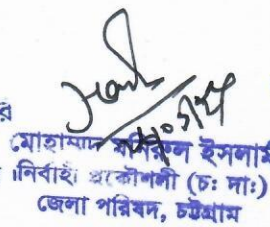 রি
মোহাম্মদ ইসলাম
নির্বাহী প্রকৌশলী (চ: দা:)
জেলা পরিষদ, চট্টগ্রাম